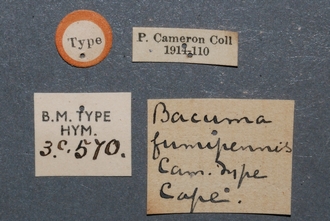 Type
P. Cameron Coll
1914-110
B.M. TYPE
HYM.
3.c.570.
Bacuma
fumipennis
Cam. Type
Cape.